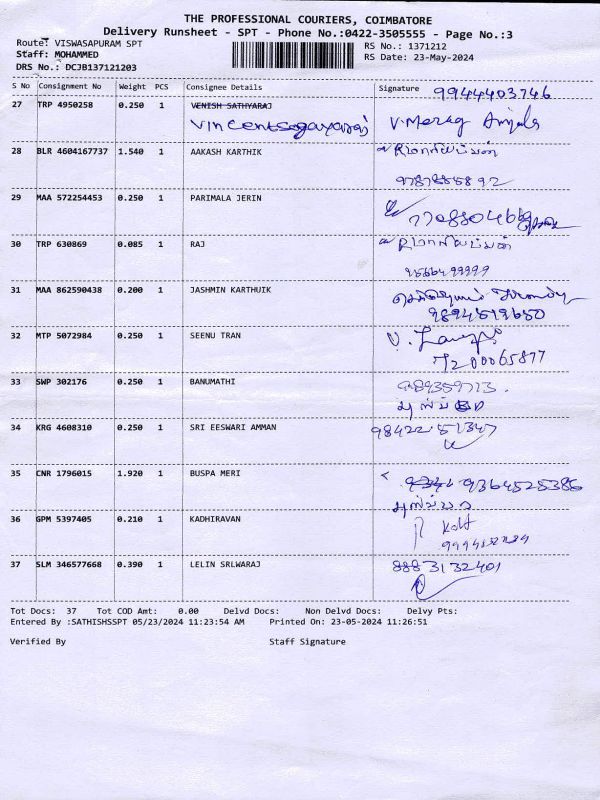 THE PROFESSIONAL COURIERS, COIMBATORE
Delivery Runsheet - SPT - Phone No.:0422-3505555 - Page No.:3
Route: VISWASAPURAM SPT RS No.: 1371212
Staff: MOHAMMED RS Date: 23-May-2024
DRS No.: DCJB137121203
S No Consignment No Weight PCS Consignee Details Signature 9944403746
27 TRP 4950258 0.250 1 VENISH SATHYARAJ
28 BLR 4604167737 1.540 1 AAKASH KARTHIK
29 MAA 572254453 0.250 1 PARIMALA JERIN
30 TRP 630869 0.085 1 RAJ
31 MAA 862590438 0.200 1 JASHMIN KARTHUIK
9894519650
32 MTP 5072984 0.250 1 SEENU TRAN
7200065877
33 SWP 302176 0.250 1 BANUMATHI
34 KRG 4608310 0.250 1 SRI EESWARI AMMAN 98422 51347
35 CNR 1796015 1.920 1 BUSPA MERI
9364525386
36 GPM 5397405 0.210 1 KADHIRAVAN
37 SLM 346577668 0.390 1 LELIN SRLWARAJ 8883132401
Tot Docs: 37 Tot COD Amt: 0.00 Delvd Docs: Non Delvd Docs: Delvy Pts:
Entered By :SATHISHSSPT 05/23/2024 11:23:54 AM Printed On: 23-05-2024 11:26:51
Verified By Staff Signature